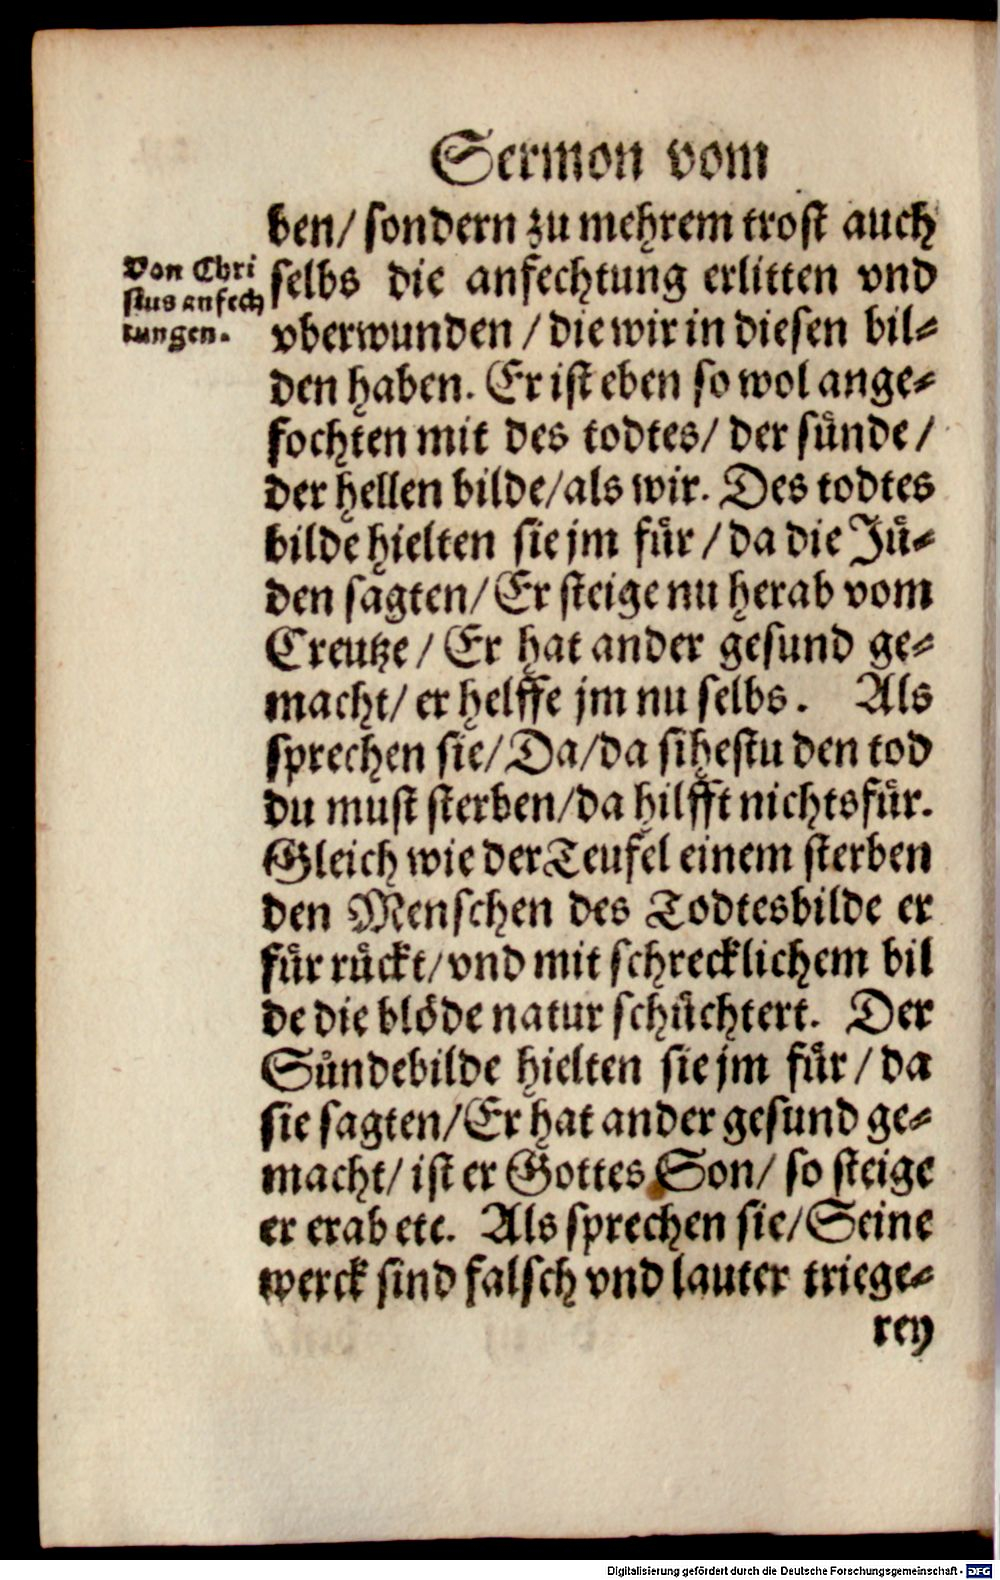 Sermon vom
ben/ sondern zu mehrem trost auch
Von Chri
stus anfech
tungen.
selbs die anfechtung erlitten vnd
vberwunden / die wir in diesen bil⸗
den haben. Er ist eben so wol ange⸗
fochten mit des todtes/ der sůnde /
der hellen bilde/als wir. Des todtes
bilde hielten sie jm fůr / da die Jů⸗
den sagten/ Er steige nu herab vom
Creutze / Er hat ander gesund ge⸗
macht/ er helffe jm nu selbs. Als
sprechen sie/ Da/da sihestu den tod
du must sterben/da hilfft nichts fůr.
Gleich wie der Teufel einem sterben
den Menschen des Todtesbilde er
fůr růckt/vnd mit schrecklichem bil
de die blöde natur schůchtert. Der
Sůndebilde hielten sie jm fůr / da
sie sagten/Er hat ander gesund ge⸗
macht/ ist er Gottes Son/ so steige
er erab etc. Als sprechen sie/ Seine
werck sind falsch vnd lauter triege⸗
rey
Digitalisierung gefördert durch die Deutsche Forschungsgemeinschaft - DFG